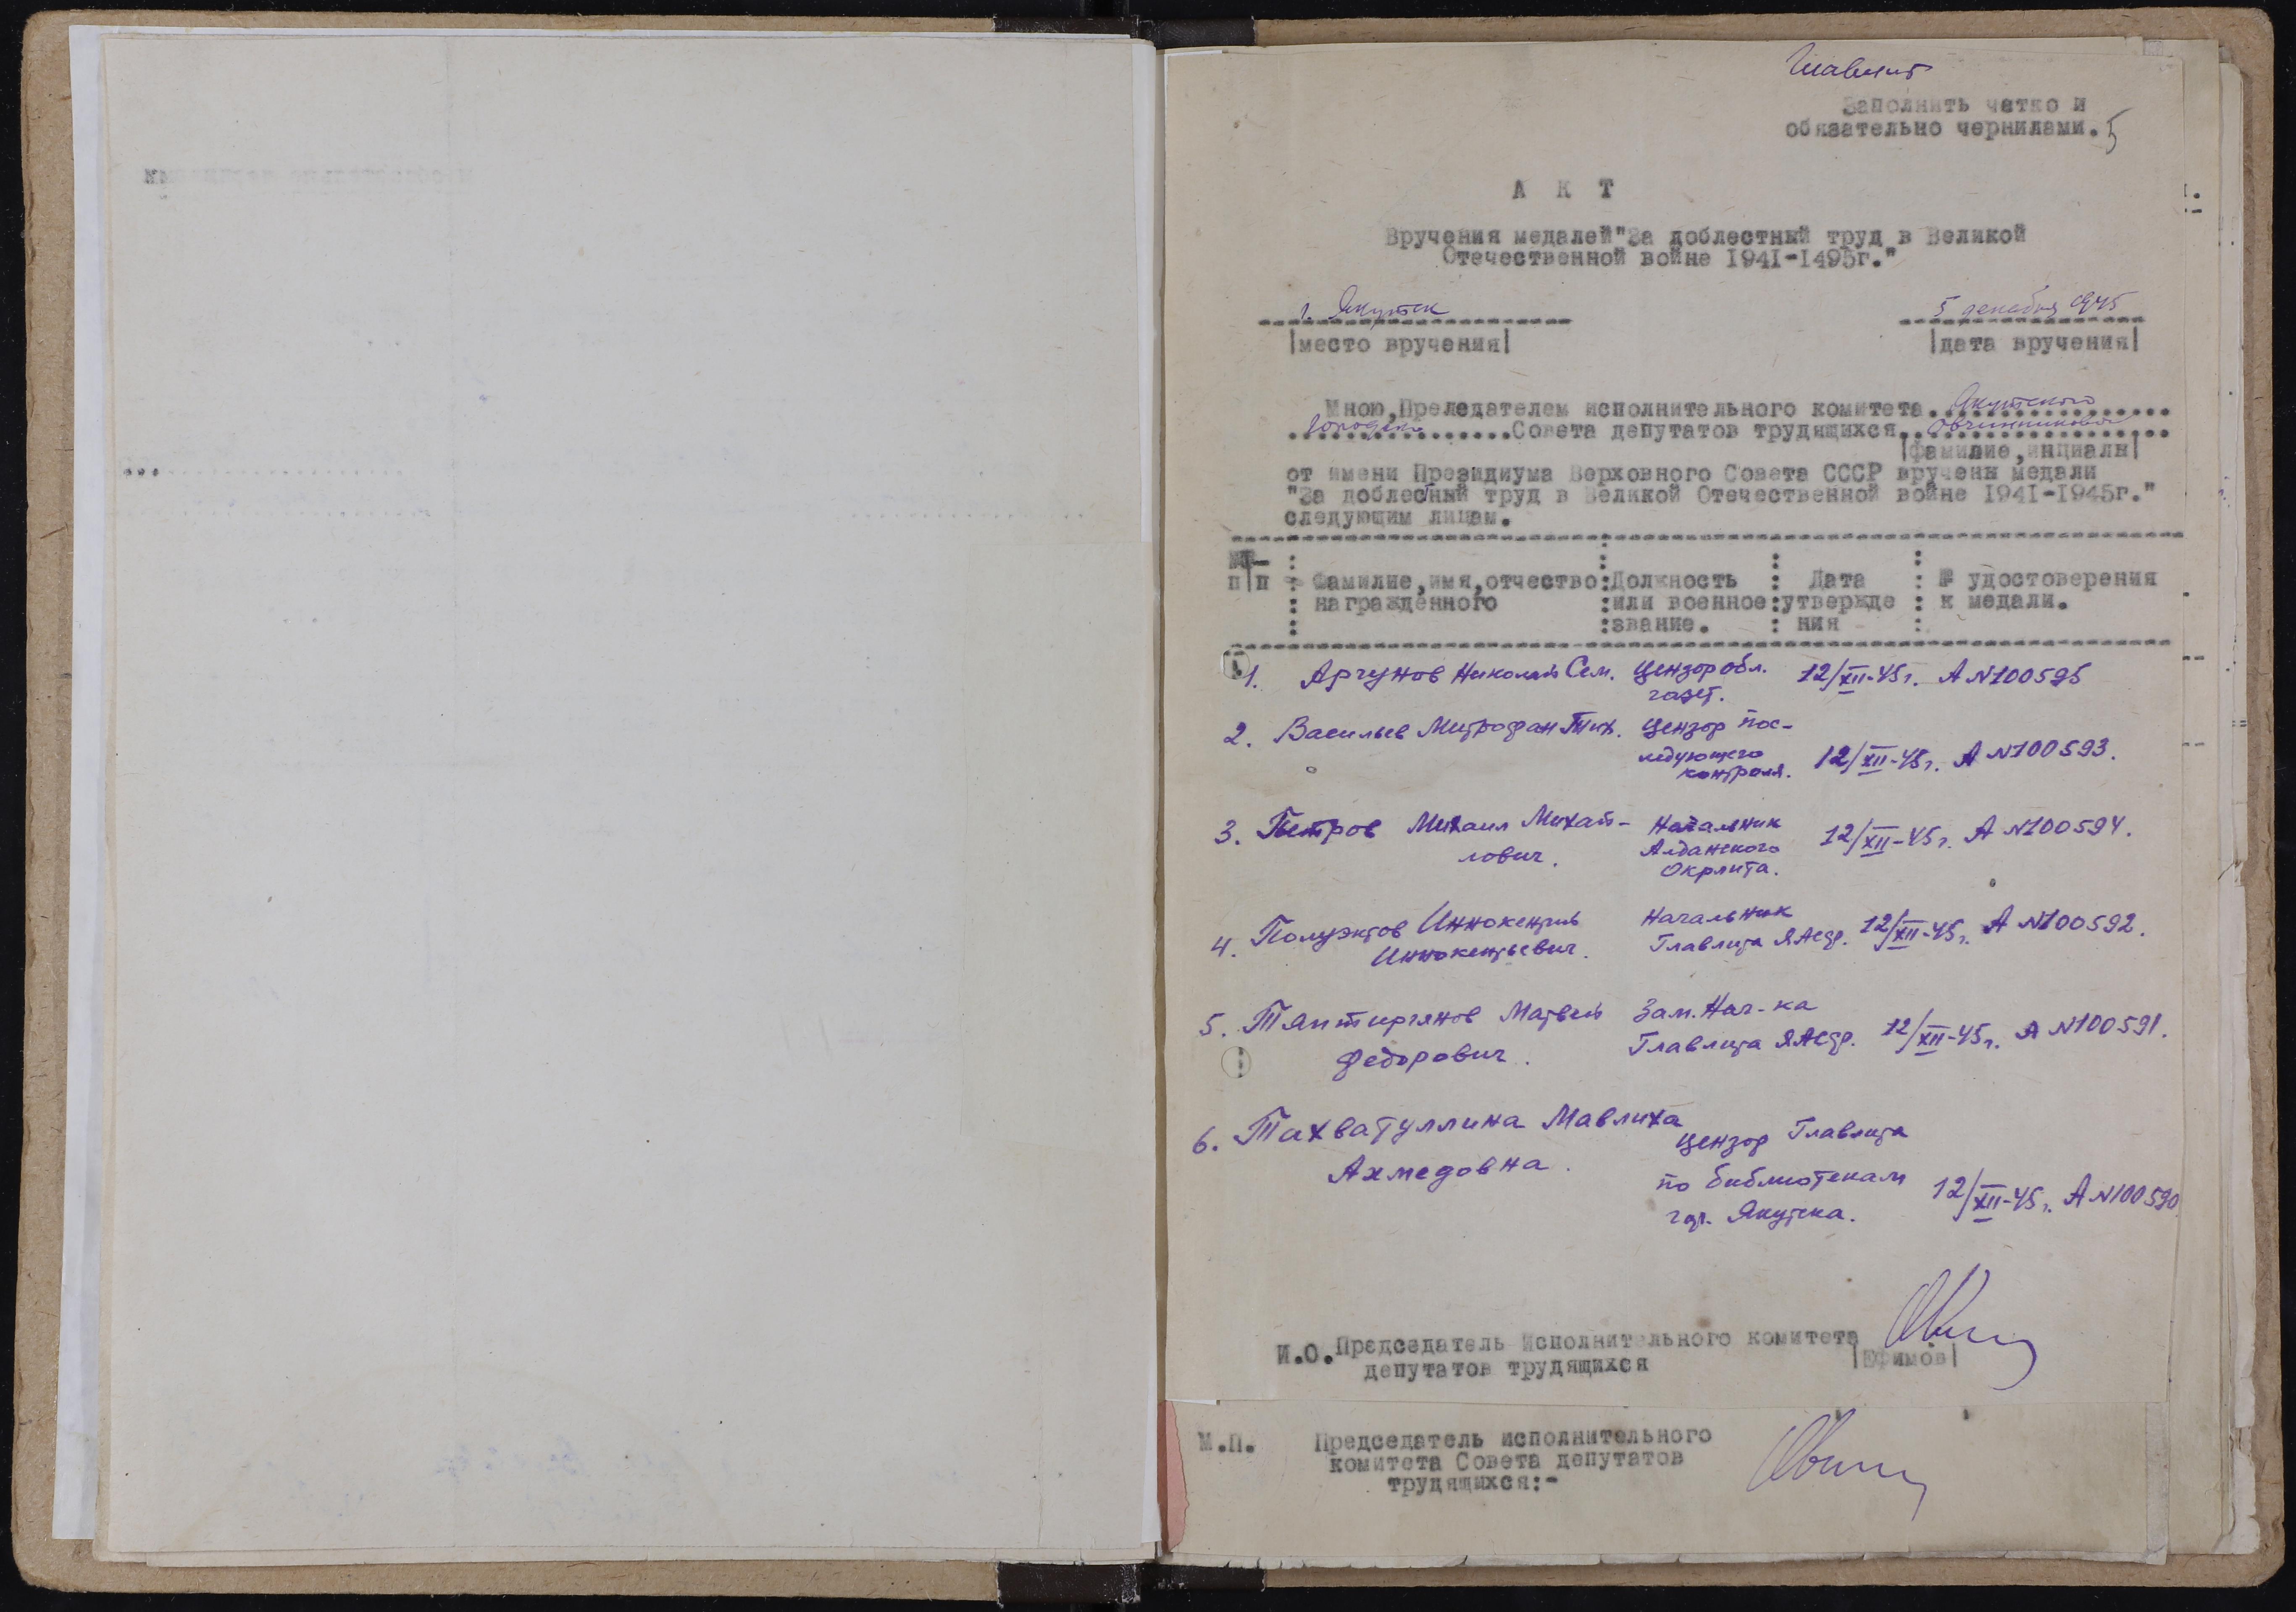 Главлит
Заполнить четко и
обязательно чернилами. 5
А К Т
Вручения медалей "За доблестный труд в Великой
Отечественной войне 1941-1495г."
г. Якутск 5 декабря 1945
|место вручения| |дата вручения|
Мною, Преледателем исполнительного комитета Якутского
городск. Совета депутатов трудящихся Овчинниковой
|фамилие, инциалы|
от имени Президиума Верховного Совета СССР вручены медали
"За доблестный труд в Великой Отечественной войне 1941-1945г."
следующим лицам.
п|п Фамилие, имя, отчество Должность Дата № удостоверения
награжденного или военное утвержде к медали.
звание. ния
1. Аргунов Николай Сем. Цензор обл. 12/XII-45г. А N100595
газет.
2. Васильев Митрофан Тих. Цензор пос-
ледующего
контроля. 12/XII-45г. А N100593.
3. Петров Михаил Михай- Начальник 12/XII-45г. А N100594.
лович. Алданского
Окрлита.
4. Полуэктов Иннокентий Начальник
Иннокентьевич. Главлита ЯАССР. 12/XII-45г. А N100592.
5. Тяптиргянов Матвей Зам. Нач-ка
Федорович. Главлита ЯАССР. 12/XII-45г. А N100591.
6. Тахватуллина Мавлиха Цензор Главлита
Ахмедовна. по библиотекам 12/XII-45г. А N100590
гор. Якутска.
И.О. Председатель Исполнительного комитета
депутатов трудящихся |Ефимов|
М.П. Председатель исполнительного
комитета Совета депутатов
трудящихся:-